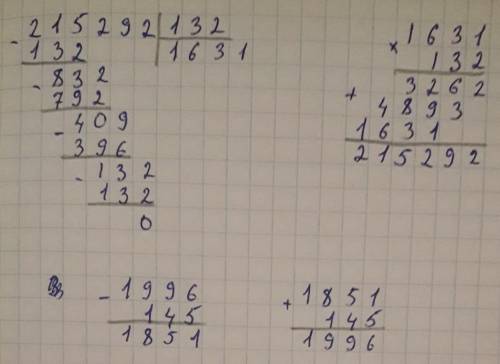 - 215292 | 132
132 1631
- 832
792
- 409
396
- 132
132
0
× 1631
132
+ 3262
4893
1631
215292
- 1996
145
1851
+ 1851
145
1996